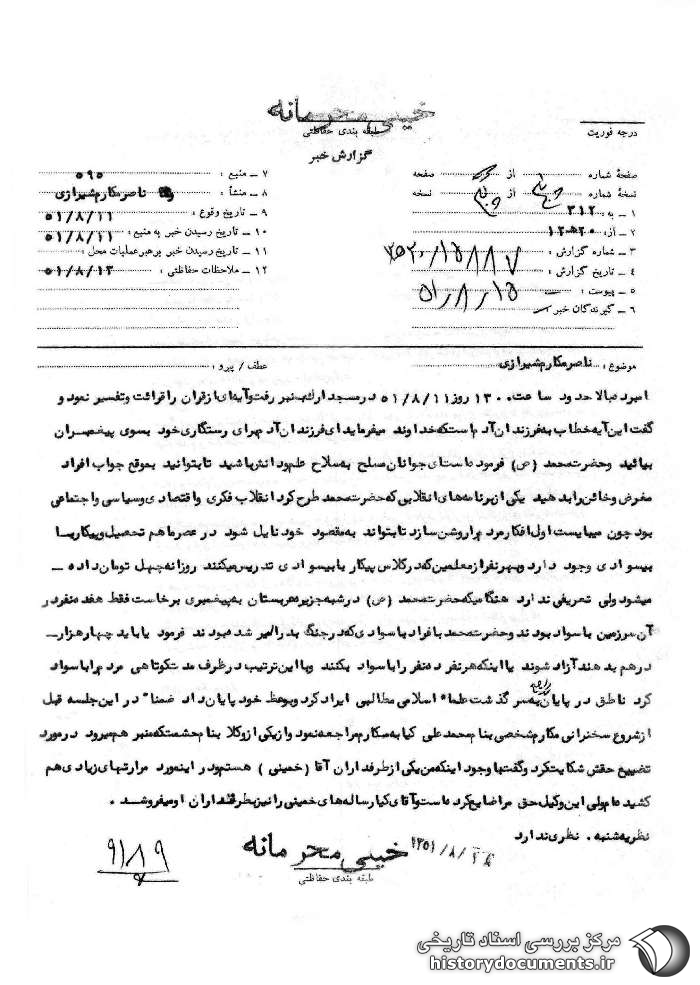 خیلی محرمانه
طبقه بندی حفاظتی
درجه فوریت
گزارش خبر
صفحهٔ شماره از صفحه
نسخهٔ شماره از نسخه
۱ – به : ۳۱۲
۲ – از : ۲۰ﻫ۱۲
۳ – شماره گزارش :
۴ – تاریخ گزارش :
۵ – پیوست :
۶ – گیرندگان خبر
۷ – منبع : ۵۹۵
۸ – منشأ : ناصر مکارم شیرازی
۹ – تاریخ وقوع : ۵۱/۸/۱۱
۱۰ – تاریخ رسیدن خبر به منبع : ۵۱/۸/۱۱
۱۱ – تاریخ رسیدن خبر برهبر عملیات محل :
۱۲ – ملاحظات حفاظتی : ۵۱/۸/۱۳
موضوع : ناصر مکارم شیرازی
عطف / پیرو :
نامبرده بالا حدود ساعت ۱۳۰ روز ۵۱/۸/۱۱ در مسجد ارک بمنبر رفت و آیه‌ای از قران را قرائت و تفسیر نمود و
گفت این آیه خطاب به فرزندان آدم است که خداوند میفرماید ای فرزندان آدم برای رستگاری خود بسوی پیغمبران
بیائید و حضرت محمد (ص) فرموده است ای جوانان مسلح به سلاح علم و دانش باشید تا بتوانید بموقع جواب افراد
مغرض و خائن را بدهید یکی از برنامه‌های انقلابی که حضرت محمد طرح کرد انقلاب فکری و اقتصادی و سیاسی و اجتماعی
بود چون میبایست اول افکار مردم را روشن سازد تا بتواند به مقصود خود نایل شود در عصر ما هم تحصیل و پیکار با
بیسوادی وجود دارد و بهر نفر از معلمین که در کلاس پیکار با بیسوادی تدریس میکنند روزانه چهل تومان داده –
میشود ولی تعریفی ندارد هنگامیکه حضرت محمد (ص) در شبه جزیره عربستان به پیغمبری برخاست فقط هفده نفر در
آن سرزمین با سواد بودند و حضرت محمد با افراد با سوادی که در جنگ بدر اسیر شده بودند فرمود یا باید چهار هزار –
درهم بدهند آزاد شوند یا اینکه هر نفر ده نفر را با سواد بکنند و با این ترتیب در ظرف مدت کوتاهی مردم را با سواد
کرد ناطق در پایان راجع به سرگذشت علماء اسلامی مطالبی ایراد کرد و بوعظ خود پایان داد ضمناً در این جلسه قبل
از شروع سخنرانی مکارم شخصی بنام محمد علی کیا به مکارم مراجعه نمود و از یکی از وکلا بنام حشمت که منبر هم میرود در مورد
تضییع حقش شکایت کرد و گفت با وجود اینکه من یکی از طرفداران آقا (خمینی) هستم و در اینمورد مرارتهای زیادی هم
کشیده‌ام ولی این وکیل حق مرا ضایع کرده است و آقای کیا رساله‌های خمینی را نیز بطرفداران او میفروشد .
نظریه شنبه . نظری ندارد
خیلی محرمانه
طبقه بندی حفاظتی
۹۱۸۹
مرکز بررسی اسناد تاریخی
historydocuments.ir